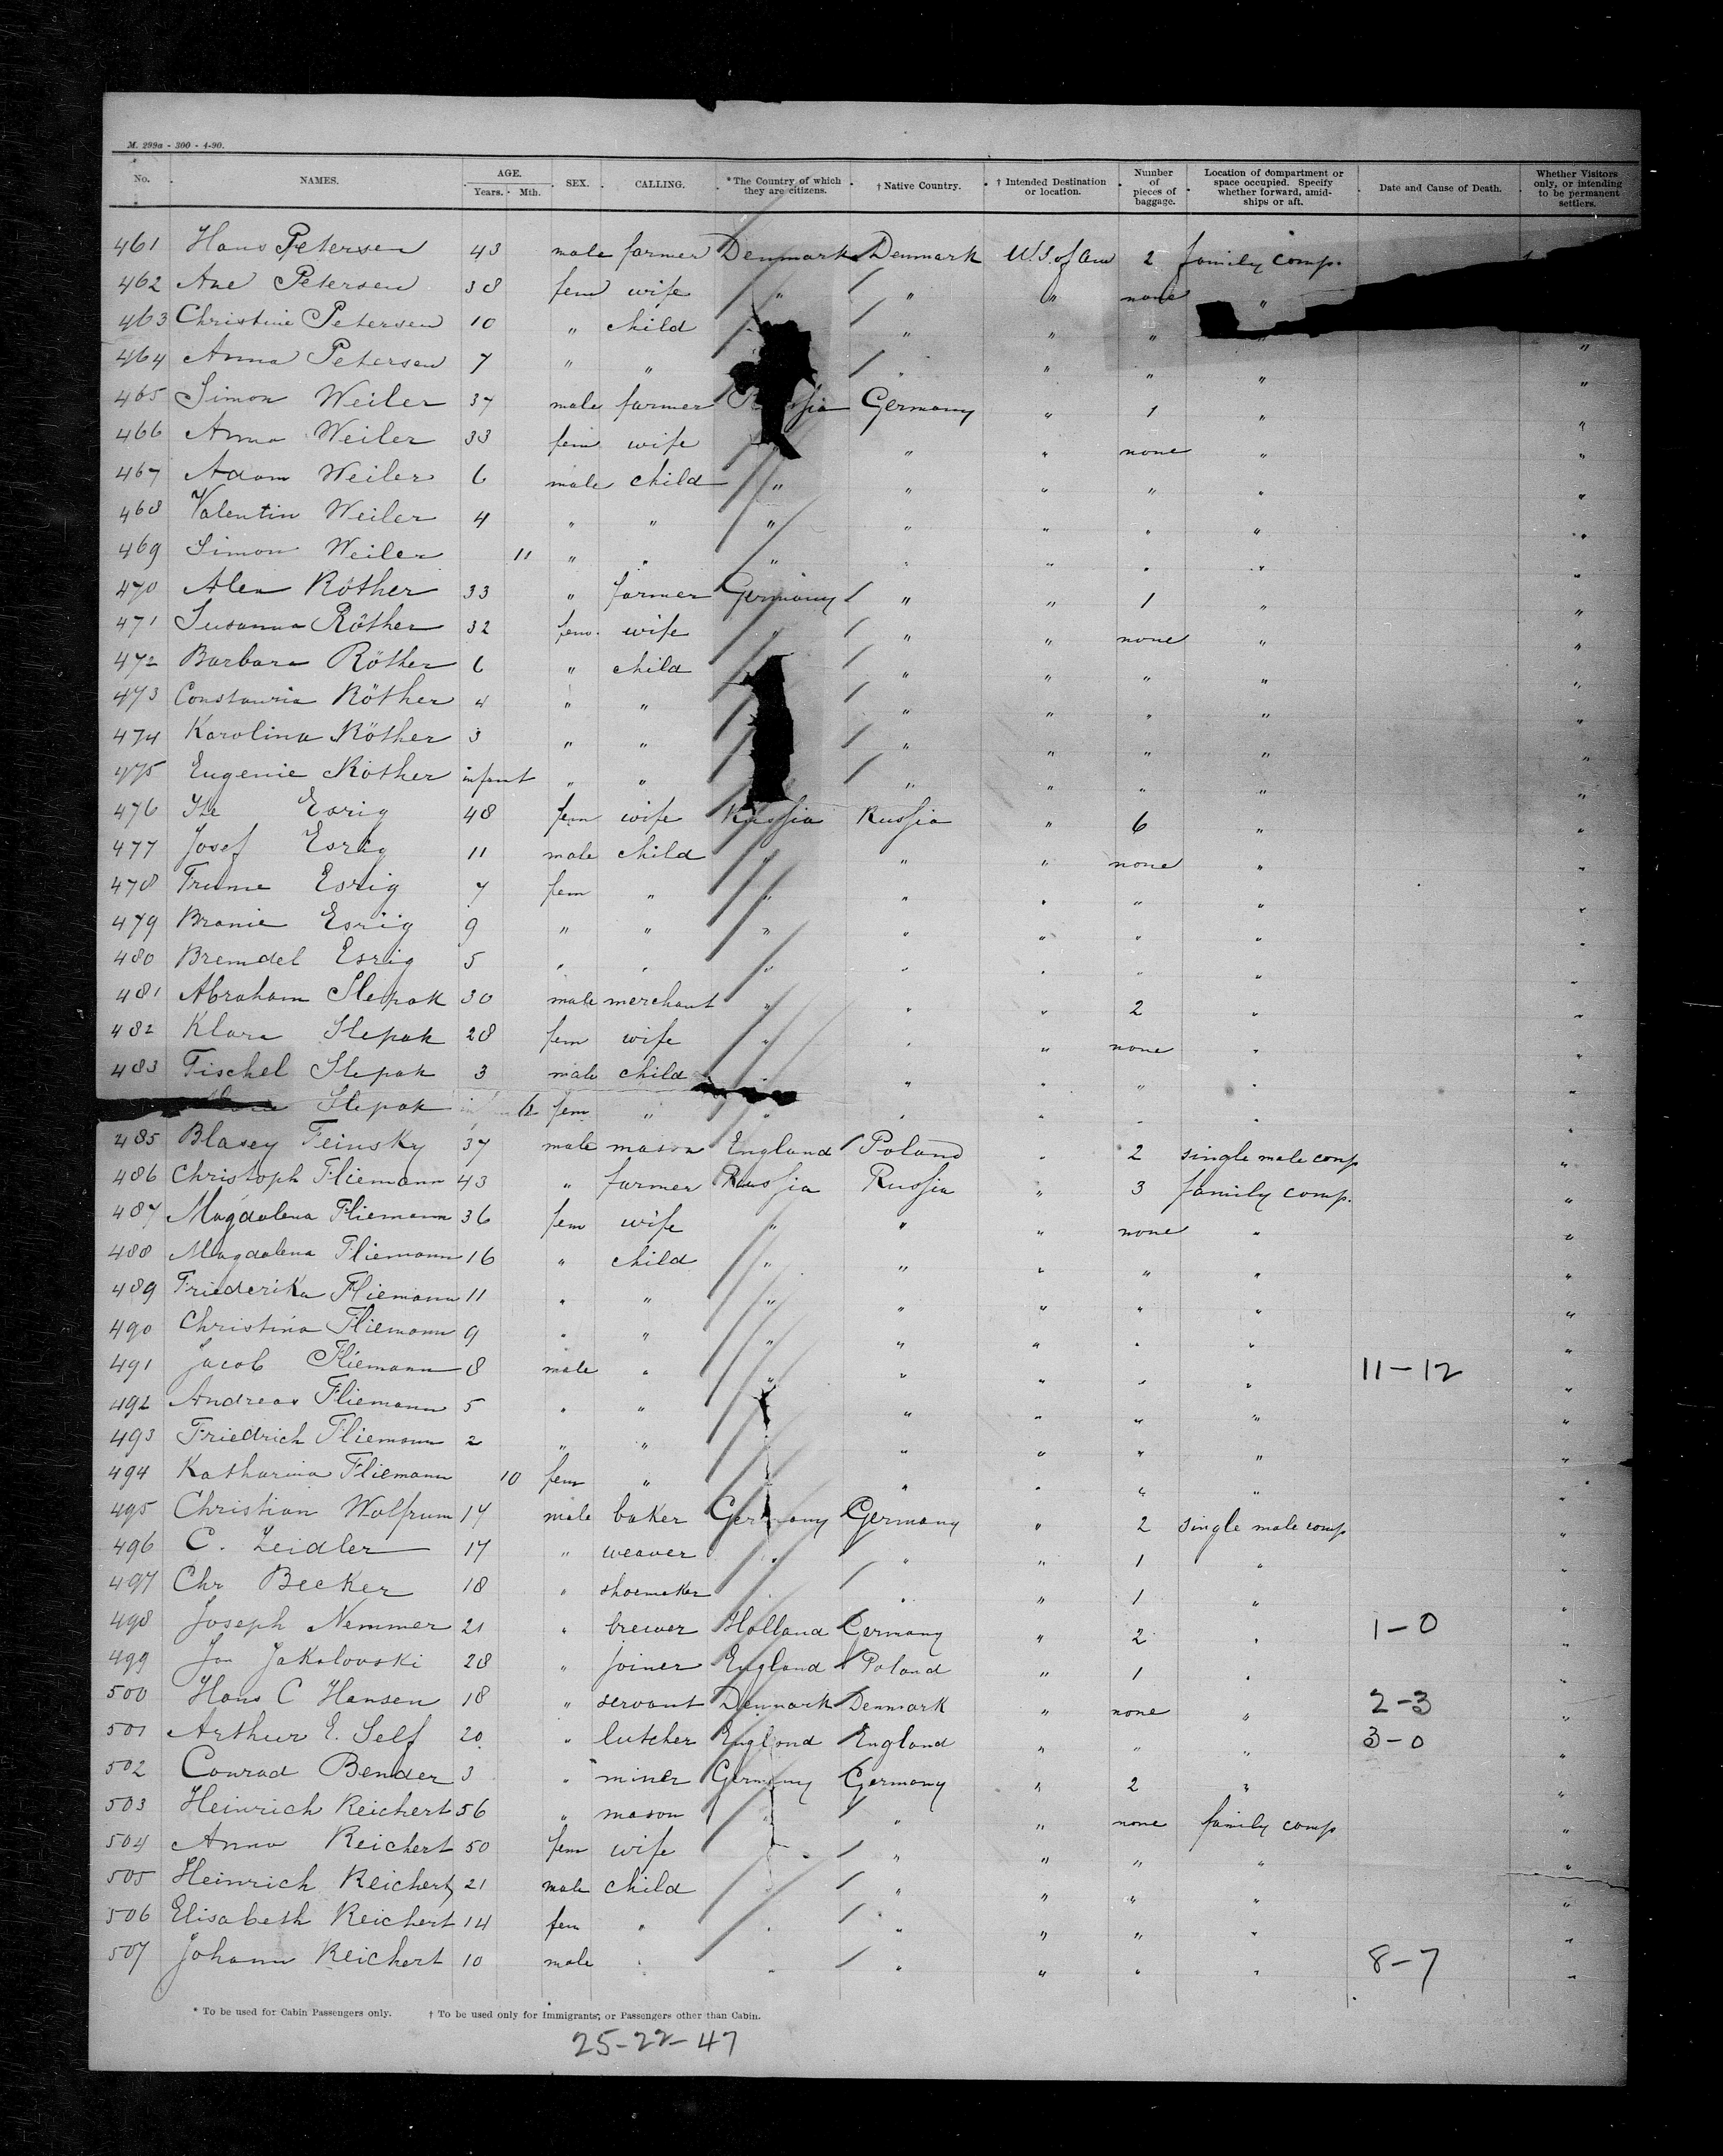 M. 299a - 300 - 4-90.
No. NAMES. AGE. Years. Mth. SEX. CALLING. *The Country of which they are citizens. † Native Country. † Intended Destination or location. Number of pieces of baggage. Location of compartment or space occupied. Specify whether forward, amidships or aft. Date and Cause of Death. Whether Visitors only, or intending to be permanent settlers.
461 Hans Petersen 43 male farmer Denmark Denmark U.S. of Am 2 family comp.
462 Ane Petersen 38 fem wife " " " none "
463 Christine Petersen 10 " child " " " "
464 Anna Petersen 7 " " " " " " "
465 Simon Weiler 37 male farmer Russia Germany " 1 " "
466 Anna Weiler 33 fem wife " " none " "
467 Adam Weiler 6 male child " " " " " "
468 Valentin Weiler 4 " " " " " " " "
469 Simon Weiler 11 " " " " " " " "
470 Alex Röther 33 " farmer Germany " " 1 " "
471 Susanna Röther 32 fem. wife " " " none " "
472 Barbara Röther 6 " child " " " " "
473 Röther 4 " " " " " " "
474 Karolina Röther 3 " " " " " " "
475 Eugenie Röther infant " " " " " " "
476 Ite Esrig 48 fem wife Russia Russia " 6 " "
477 Josef Esrig 11 male child " " " none " "
478 Frume Esrig 7 fem " " " " " " "
479 Branie Esrig 9 " " " " " " " "
480 Bremdel Esrig 5 " " " " " " " "
481 Abraham Slepak 30 male merchant " " " 2 " "
482 Klara Slepak 28 fem wife " " " none " "
483 Fischel Slepak 3 male child " " " " "
Slepak fem " " " " " " "
485 Blasey Feinsky 37 male mason England Poland " 2 single male comp "
486 Christoph Fliemann 43 " farmer Russia Russia " 3 family comp. "
487 Magdalena Fliemann 36 fem wife " " " none " "
488 Magdalena Fliemann 16 " child " " " " " "
489 Friederika Fliemann 11 " " " " " " " "
490 Christina Fliemann 9 " " " " " " " "
491 Jacob Fliemann 8 male " " " " " " 11-12 "
492 Andreas Fliemann 5 " " " " " " "
493 Friedrich Fliemann 2 " " " " " " "
494 Katharina Fliemann 10 fem " " " " " "
495 Christian Wolfrum 17 male baker Germany Germany " 2 single male comp "
496 C. Zeidler 17 " weaver " " " 1 " "
497 Chr Becker 18 " shoemaker " " " 1 " "
498 Joseph Nemmer 21 " brewer Holland Germany " 2 " 1-0 "
499 Jan Jakolovski 28 " joiner England Poland " 1 " "
500 Hans C Hansen 18 " servant Denmark Denmark " none " 2-3 "
501 Arthur E. Self 20 " butcher England England " " " 3-0 "
502 Conrad Bender 3 " miner Germany Germany " 2 " "
503 Heinrich Reichert 56 " mason " " " none family comp "
504 Anna Reichert 50 fem wife " " " " " "
505 Heinrich Reichert 21 male child " " " " " "
506 Elisabeth Reichert 14 fem " " " " " " "
507 Johann Reichert 10 male " " " " " " 8-7 "
* To be used for Cabin Passengers only. † To be used only for Immigrants, or Passengers other than Cabin.
25-22-47